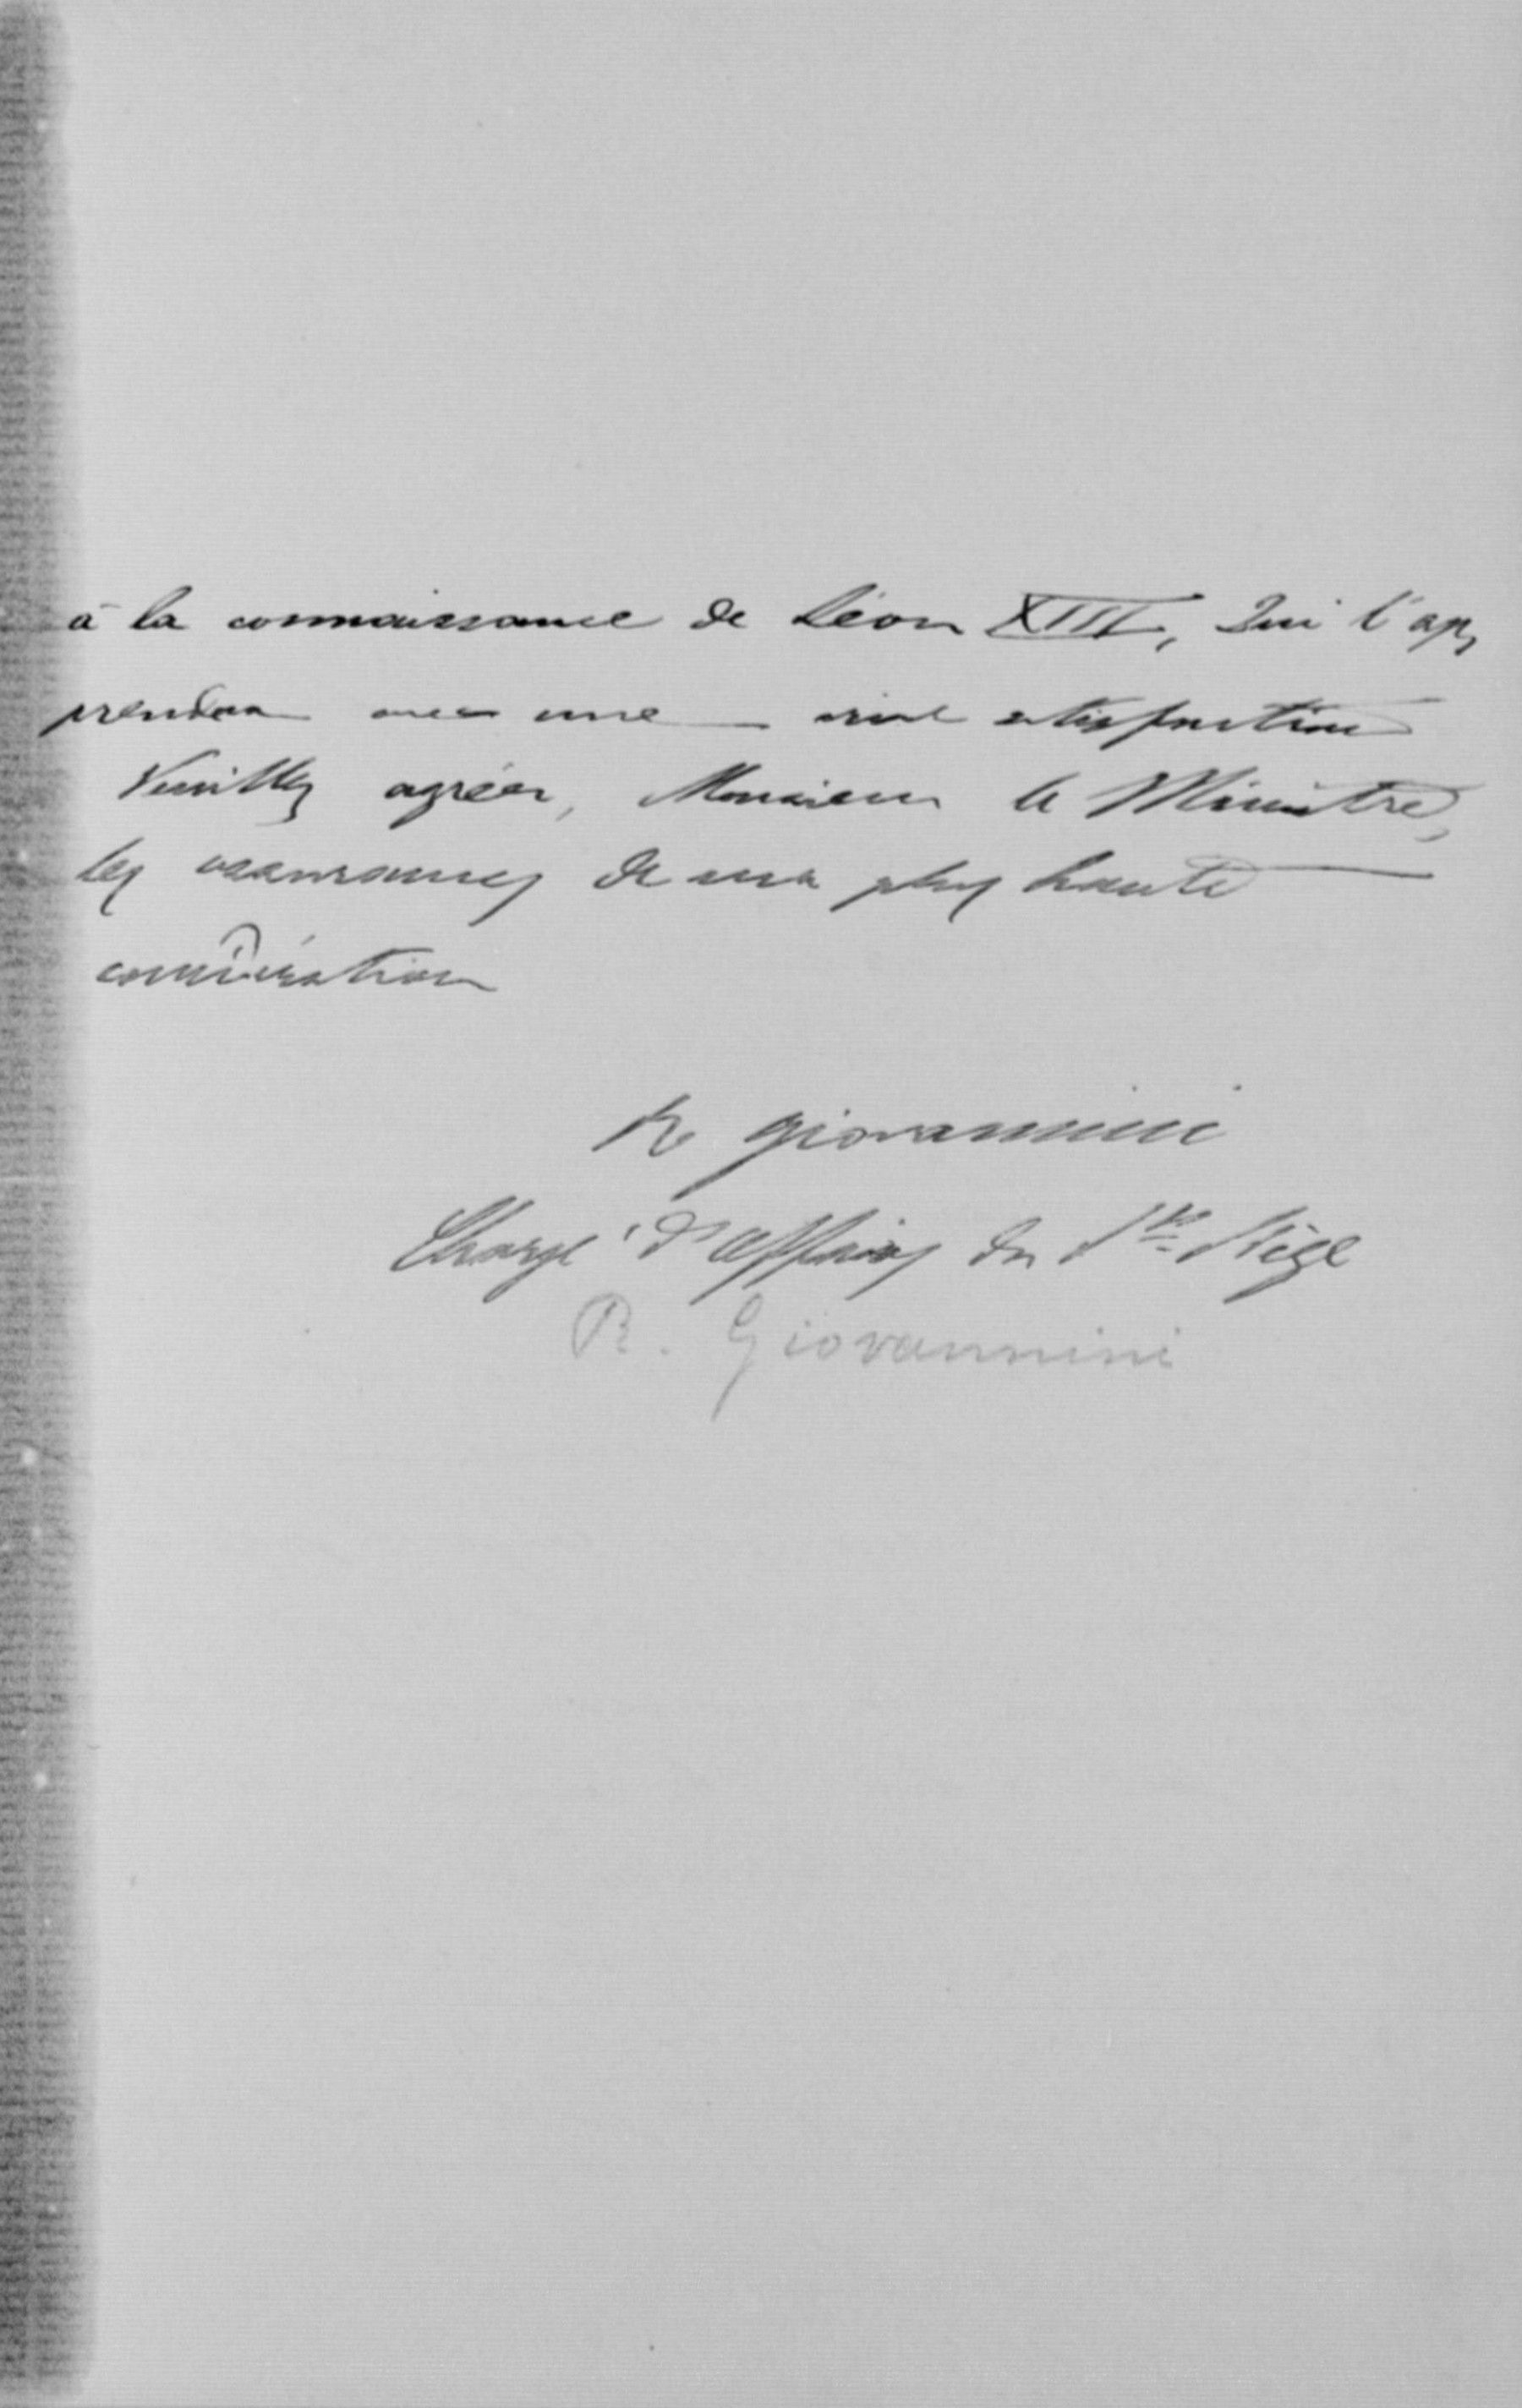 à la connaissance de Léon XIII, Qui l'ap,
prendra avec une vive satisfaction
Veuillez agréer, Monsieur le Ministre,
les assurances de ma plus haute
considération
R Giovannini
Chargé d'affaires du St Siège
R. Giovannini